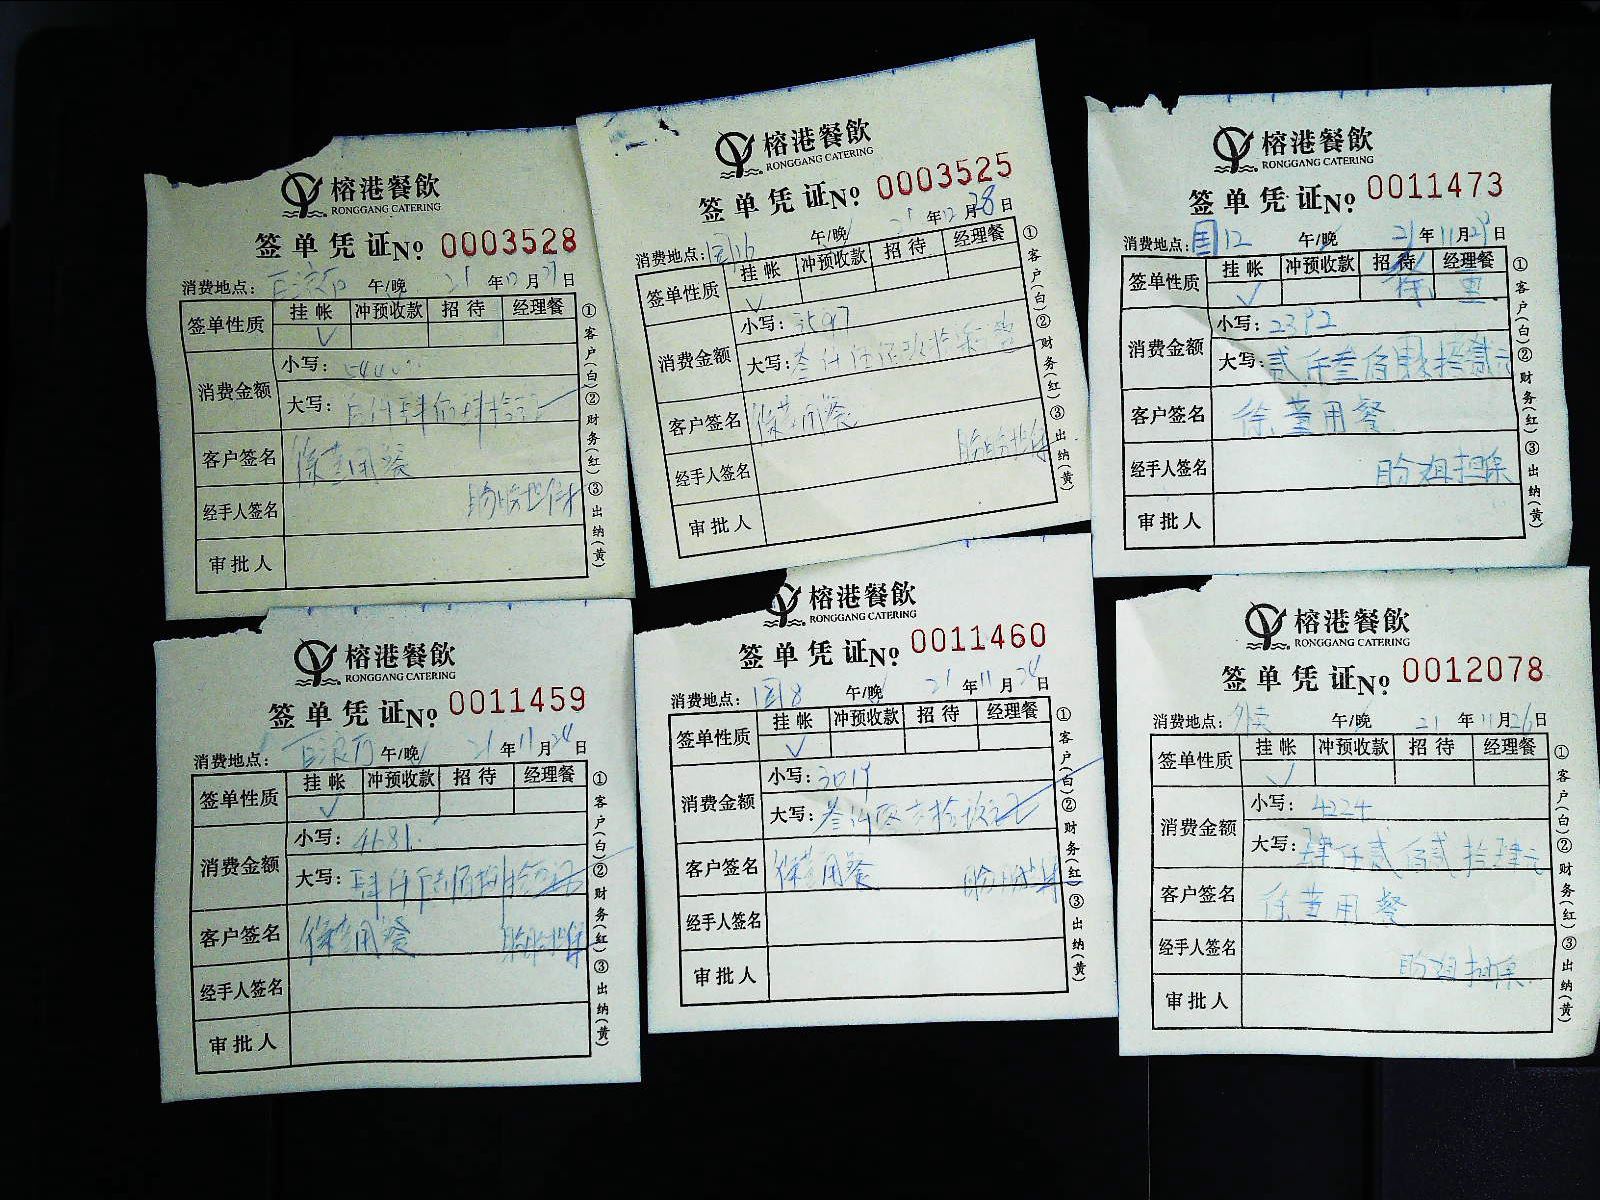 榕港餐飲
RONGGANG CATERING
签单凭证 № 0003528
消费地点: 午/晚 21 年 12 月 27 日
签单性质 挂帐 冲预收款 招待 经理餐
✓
消费金额 小写:
大写:
客户签名 徐董用餐
经手人签名
审批人
①客户(白)②财务(红)③出纳(黄)
榕港餐飲
RONGGANG CATERING
签单凭证 № 0003525
消费地点: 园16 午/晚 21 年 12 月 28 日
签单性质 挂帐 冲预收款 招待 经理餐
✓
消费金额 小写: 3597
大写:
客户签名 徐董用餐
经手人签名
审批人
①客户(白)②财务(红)③出纳(黄)
榕港餐飲
RONGGANG CATERING
签单凭证 № 0011473
消费地点: 园12 午/晚 21 年 11 月 29 日
签单性质 挂帐 冲预收款 招待 经理餐
✓ 徐董
消费金额 小写: 2392
大写: 贰仟叁佰玖拾贰元
客户签名 徐董用餐
经手人签名 盼姐担保
审批人
①客户(白)②财务(红)③出纳(黄)
榕港餐飲
RONGGANG CATERING
签单凭证 № 0011459
消费地点: 午/晚 21 年 11 月 24 日
签单性质 挂帐 冲预收款 招待 经理餐
✓
消费金额 小写: 4681
大写:
客户签名 徐董用餐 盼姐担保
经手人签名
审批人
①客户(白)②财务(红)③出纳(黄)
榕港餐飲
RONGGANG CATERING
签单凭证 № 0011460
消费地点: 园8 午/晚 21 年 11 月 24 日
签单性质 挂帐 冲预收款 招待 经理餐
✓
消费金额 小写:
大写:
客户签名 徐董用餐 盼姐担保
经手人签名
审批人
①客户(白)②财务(红)③出纳(黄)
榕港餐飲
RONGGANG CATERING
签单凭证 № 0012078
消费地点: 外卖 午/晚 21 年 11 月 26 日
签单性质 挂帐 冲预收款 招待 经理餐
✓
消费金额 小写: 4224
大写: 肆仟贰佰贰拾肆元
客户签名 徐董用餐
经手人签名 盼姐担保
审批人
①客户(白)②财务(红)③出纳(黄)